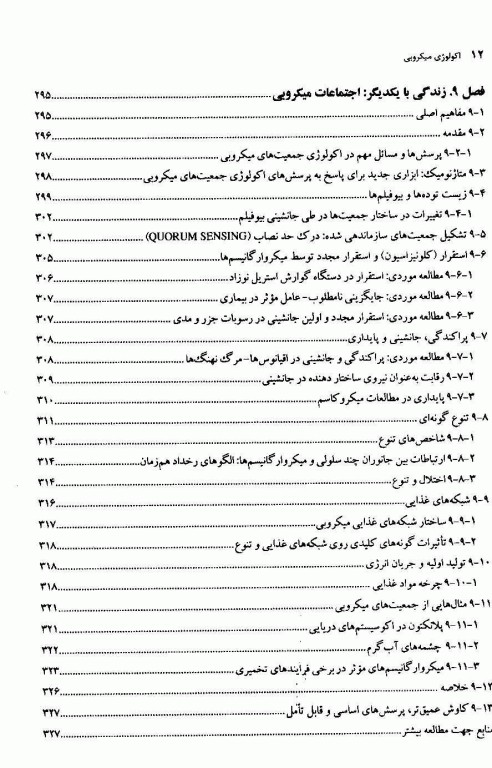 ۱۲ اکولوژی میکروبی
فصل ۹. زندگی با یکدیگر: اجتماعات میکروبی ۲۹۵
۹-۱ مفاهیم اصلی ۲۹۵
۹-۲ مقدمه ۲۹۶
۹-۲-۱ پرسش‌ها و مسائل مهم در اکولوژی جمعیت‌های میکروبی ۲۹۷
۹-۳ متاژنومیک: ابزاری جدید برای پاسخ به پرسش‌های اکولوژی جمعیت‌های میکروبی ۲۹۸
۹-۴ زیست توده‌ها و بیوفیلم‌ها ۲۹۹
۹-۴-۱ تغییرات در ساختار جمعیت‌ها در طی جانشینی بیوفیلم ۳۰۲
۹-۵ تشکیل جمعیت‌های سازماندهی شده: درک حد نصاب (QUORUM SENSING) ۳۰۲
۹-۶ استقرار (کلونیزاسیون) و استقرار مجدد توسط میکروارگانیسم‌ها ۳۰۵
۹-۶-۱ مطالعه موردی: استقرار در دستگاه گوارش استریل نوزاد ۳۰۶
۹-۶-۲ مطالعه موردی: جایگزینی نامطلوب-عامل مؤثر در بیماری ۳۰۷
۹-۶-۳ مطالعه موردی: استقرار مجدد و اولین جانشینی در رسوبات جزر و مدی ۳۰۷
۹-۷ پراکندگی، جانشینی و پایداری ۳۰۸
۹-۷-۱ مطالعه موردی: پراکندگی و جانشینی در اقیانوس‌ها-مرگ نهنگ‌ها ۳۰۸
۹-۷-۲ رقابت به‌عنوان نیروی ساختار دهنده در جانشینی ۳۰۹
۹-۷-۳ پایداری در مطالعات میکروکاسم ۳۱۰
۹-۸ تنوع گونه‌ای ۳۱۱
۹-۸-۱ شاخص‌های تنوع ۳۱۳
۹-۸-۲ ارتباطات بین جانوران چند سلولی و میکروارگانیسم‌ها: الگوهای رخداد هم‌زمان ۳۱۴
۹-۸-۳ اختلال و تنوع ۳۱۴
۹-۹ شبکه‌های غذایی ۳۱۶
۹-۹-۱ ساختار شبکه‌های غذایی میکروبی ۳۱۷
۹-۹-۲ تأثیرات گونه‌های کلیدی روی شبکه‌های غذایی و تنوع ۳۱۸
۹-۱۰ تولید اولیه و جریان انرژی ۳۱۸
۹-۱۰-۱ چرخه مواد غذایی ۳۱۸
۹-۱۱ مثال‌هایی از جمعیت‌های میکروبی ۳۲۱
۹-۱۱-۱ پلانکتون در اکوسیستم‌های دریایی ۳۲۱
۹-۱۱-۲ چشمه‌های آب‌گرم ۳۲۲
۹-۱۱-۳ میکروارگانیسم‌های مؤثر در برخی فرآیندهای تخمیری ۳۲۳
۹-۱۲ خلاصه ۳۲۶
۹-۱۳ کاوش عمیق‌تر، پرسش‌های اساسی و قابل تأمل ۳۲۷
منابع جهت مطالعه بیشتر ۳۲۷